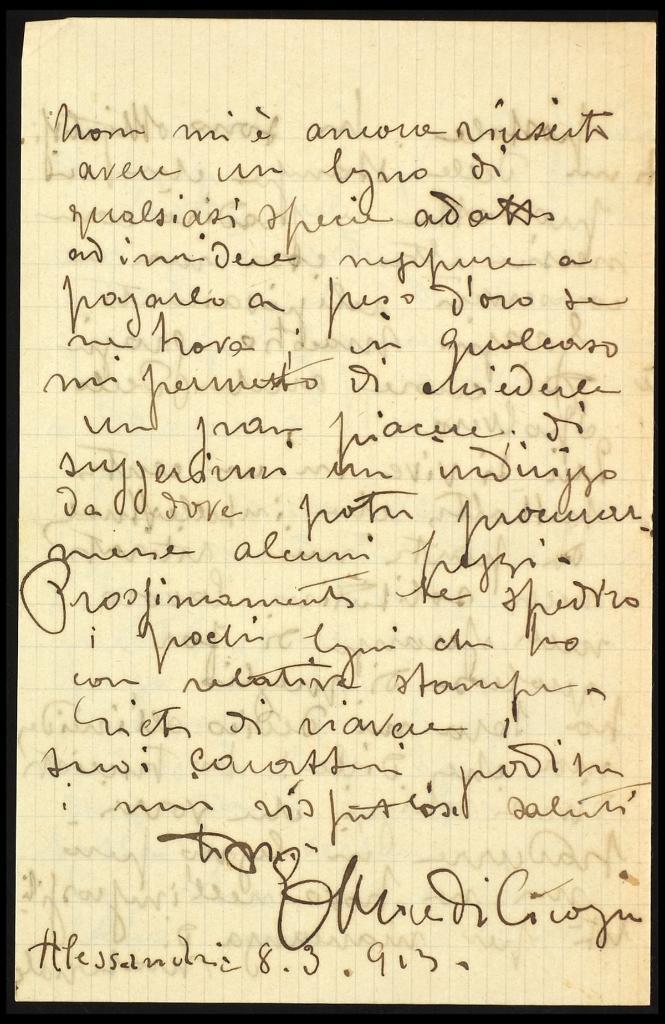 non mi è ancora riuscito
avere un legno di
qualsiasi specie adatto
ad incidere neppure a
pagarlo a peso d'oro se
ne trova; in qualcaso
mi permetto di chiederle
un gran piacere, di
suggerirmi un indirizzo
da dove potrei procurar-
mene alcuni pezzi.
Prossimamente le spedirò
i pochi legni che ho
con relative stampe.
Lieto di riavere i
suoi caratteri gradisca
i miei rispettosi saluti
Alessandria 8.3.913.